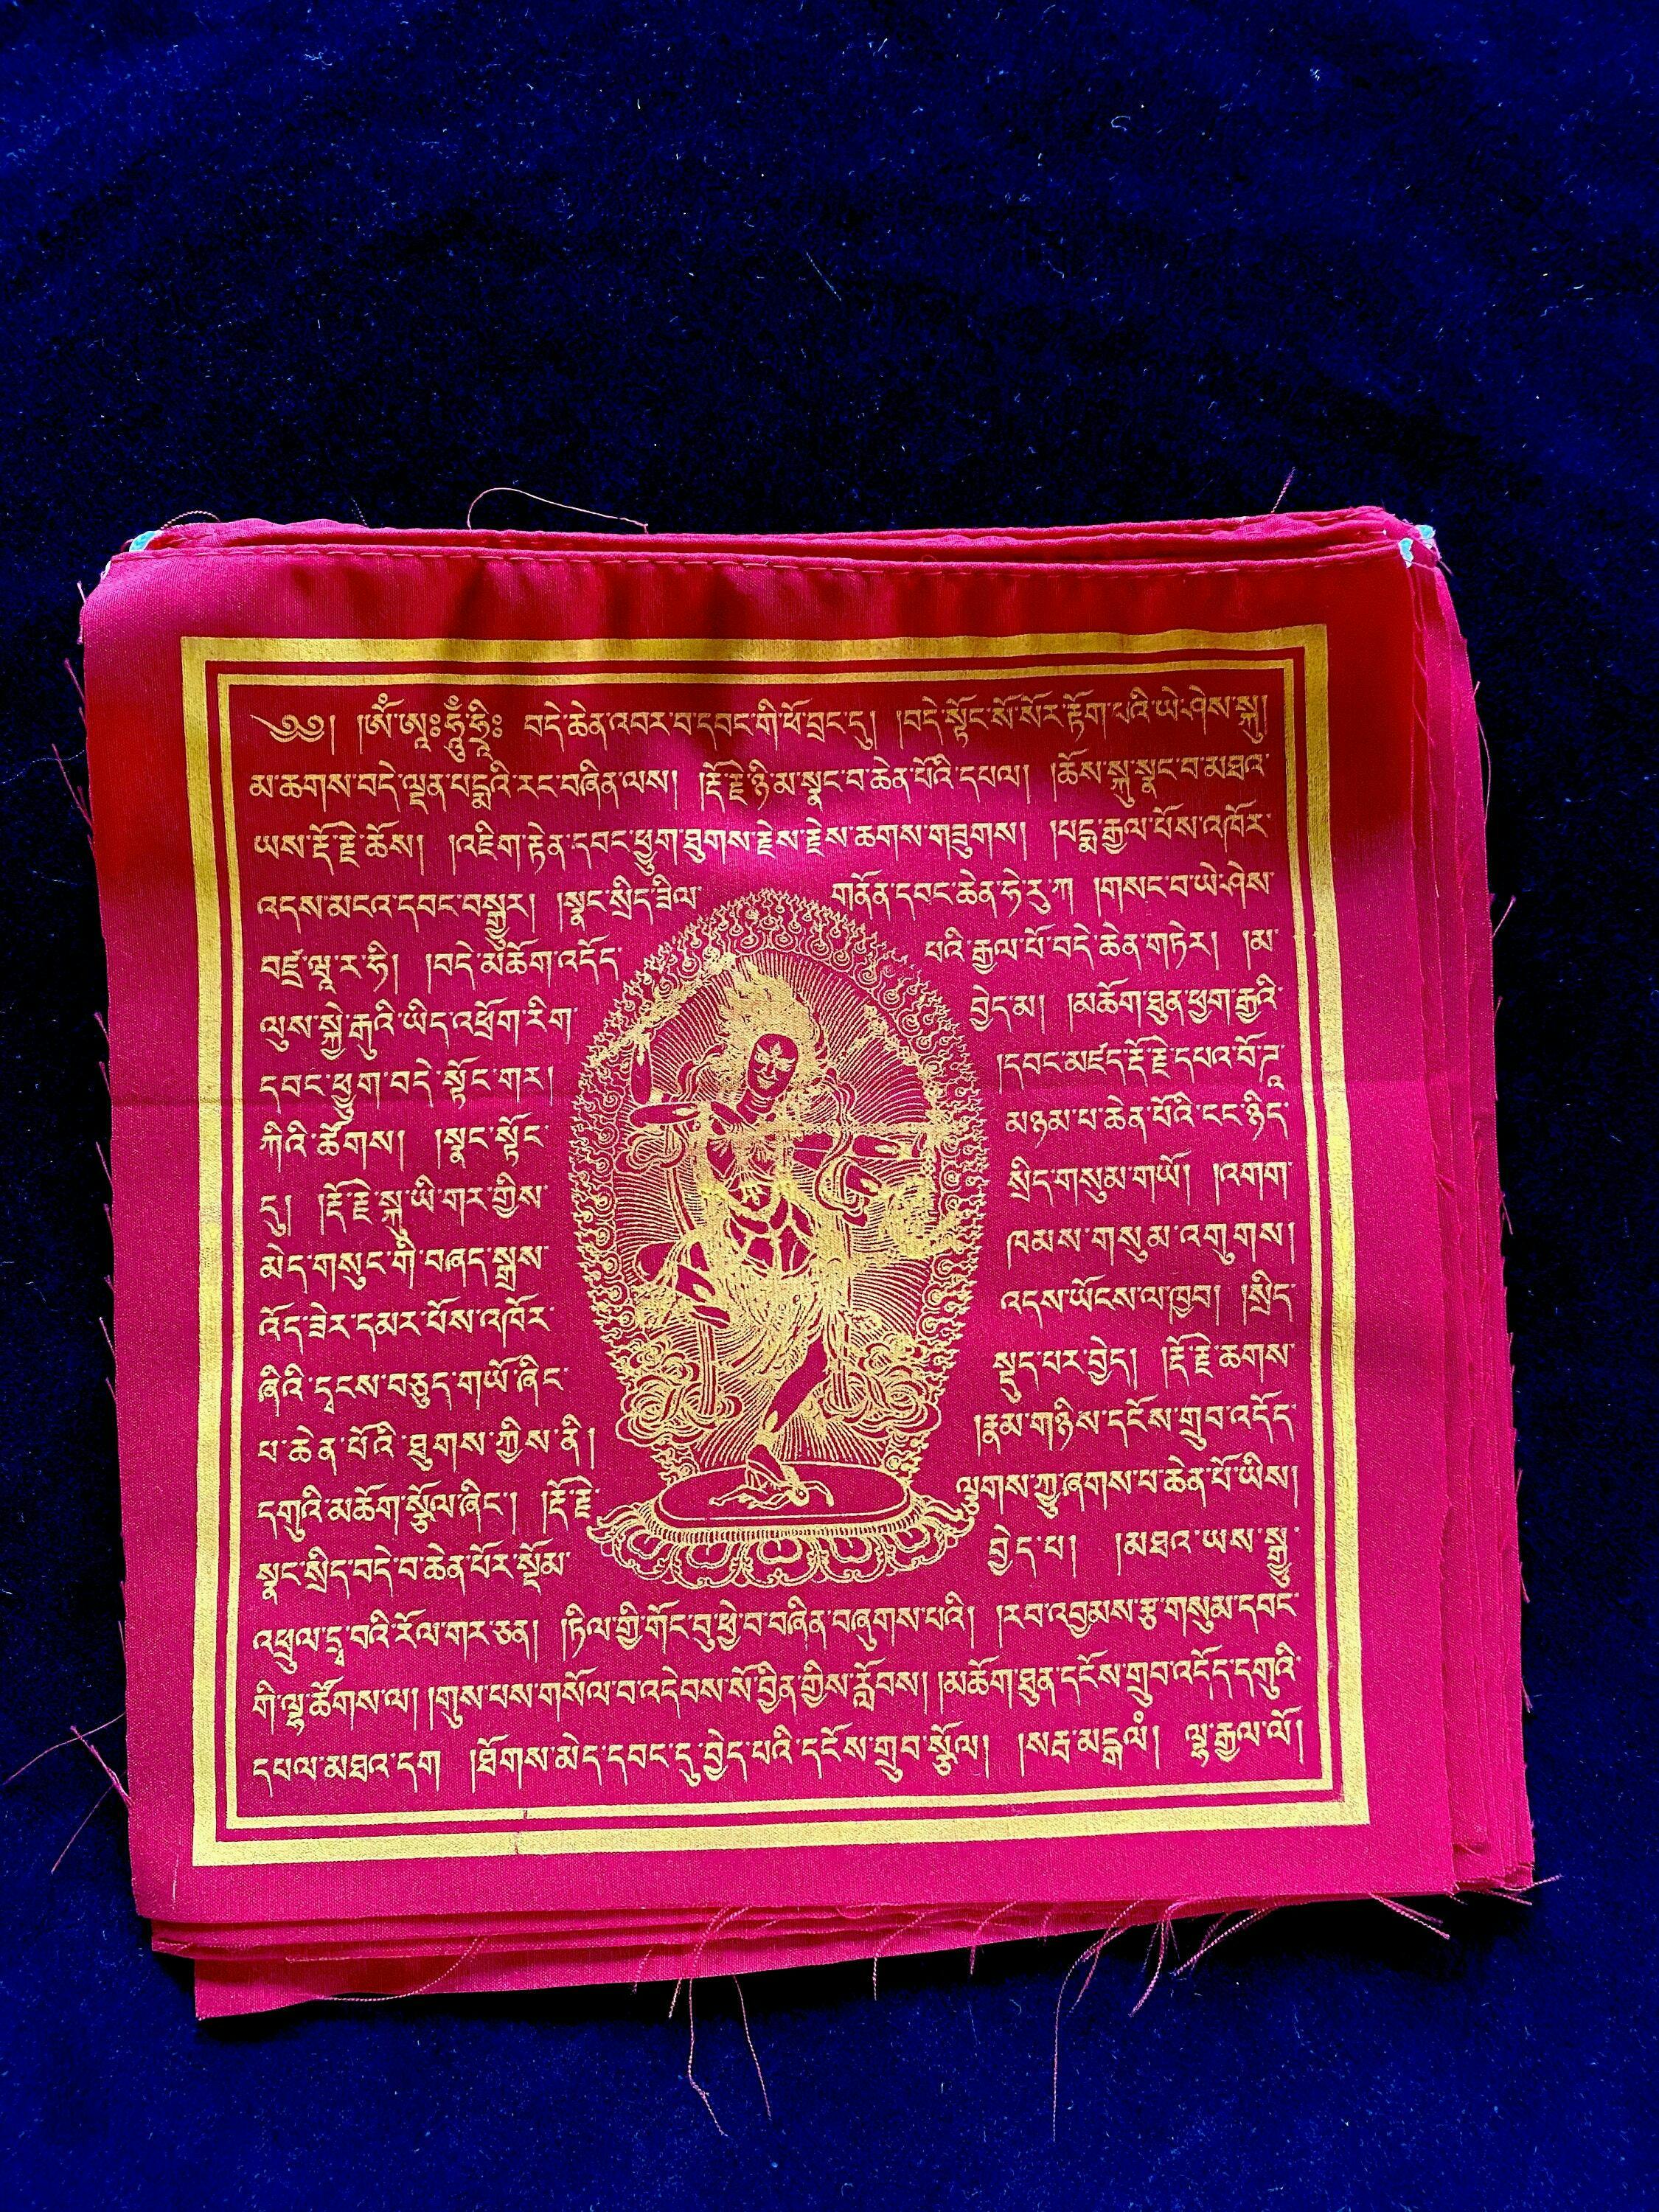 ༄༅། །ཨོཾ་ཨཱཿཧཱུྃ་ཧྲཱིཿ བདེ་ཆེན་འབར་བ་དབང་གི་ཕོ་བྲང་དུ། །བདེ་སྟོང་སོ་སོར་རྟོག་པའི་ཡེ་ཤེས་སྐུ།
མ་ཆགས་བདེ་ལྡན་པདྨའི་རང་བཞིན་ལས། །རྡོ་རྗེ་ཉི་མ་སྣང་བ་ཆེན་པོའི་དཔལ། །ཆོས་སྐུ་སྣང་བ་མཐའ་
ཡས་རྡོ་རྗེ་ཆོས། །འཇིག་རྟེན་དབང་ཕྱུག་ཐུགས་རྗེས་རྗེས་ཆགས་གཟུགས། །པདྨ་རྒྱལ་པོས་འཁོར་
འདས་མངའ་དབང་བསྒྱུར། །སྣང་སྲིད་ཟིལ་ གནོན་དབང་ཆེན་ཧེ་རུ་ཀ །གསང་བ་ཡེ་ཤེས་
བཛྲ་ཝཱ་ར་ཧི། །བདེ་མཆོག་འདོད་ པའི་རྒྱལ་པོ་བདེ་ཆེན་གཏེར། །མ་
ལུས་སྐྱེ་རྒུའི་ཡིད་འཕྲོག་རིག་ བྱེད་མ། །མཆོག་ཐུན་ཕྱག་རྒྱའི་
དབང་ཕྱུག་བདེ་སྟོང་གར། །དབང་མཛད་རྡོ་རྗེ་དཔའ་བོ་ཌཱ་
ཀིའི་ཚོགས། །སྣང་སྟོང་ མཉམ་པ་ཆེན་པོའི་ངང་ཉིད་
དུ། །རྡོ་རྗེ་སྐུ་ཡི་གར་གྱིས་ སྲིད་གསུམ་གཡོ། །འགག་
མེད་གསུང་གི་བཞད་སྒྲས་ ཁམས་གསུམ་འགུགས།
འོད་ཟེར་དམར་པོས་འཁོར་ འདས་ཡོངས་ལ་ཁྱབ། །སྲིད་
ཞིའི་དྭངས་བཅུད་གཡོ་ཞིང་ སྡུད་པར་བྱེད། །རྡོ་རྗེ་ཆགས་
པ་ཆེན་པོའི་ཐུགས་ཀྱིས་ནི། །རྣམ་གཉིས་དངོས་གྲུབ་འདོད་
དགུའི་མཆོག་སྩོལ་ཞིང་། །རྡོ་རྗེ་ ལྕགས་ཀྱུ་ཞགས་པ་ཆེན་པོ་ཡིས།
སྣང་སྲིད་བདེ་བ་ཆེན་པོར་སྡོམ་ བྱེད་པ། །མཐའ་ཡས་སྒྱུ་
འཕྲུལ་དྲྭ་བའི་རོལ་གར་ཅན། །ཏིལ་གྱི་གོང་བུ་ཕྱེ་བ་བཞིན་བཞུགས་པའི། །རབ་འབྱམས་རྩ་གསུམ་དབང་
གི་ལྷ་ཚོགས་ལ། །གུས་པས་གསོལ་བ་འདེབས་སོ་བྱིན་གྱིས་རློབས། །མཆོག་ཐུན་དངོས་གྲུབ་འདོད་དགུའི་
དཔལ་མཐའ་དག །ཐོགས་མེད་དབང་དུ་བྱེད་པའི་དངོས་གྲུབ་སྩོལ། །སརྦ་མངྒ་ལཾ། ལྷ་རྒྱལ་ལོ།